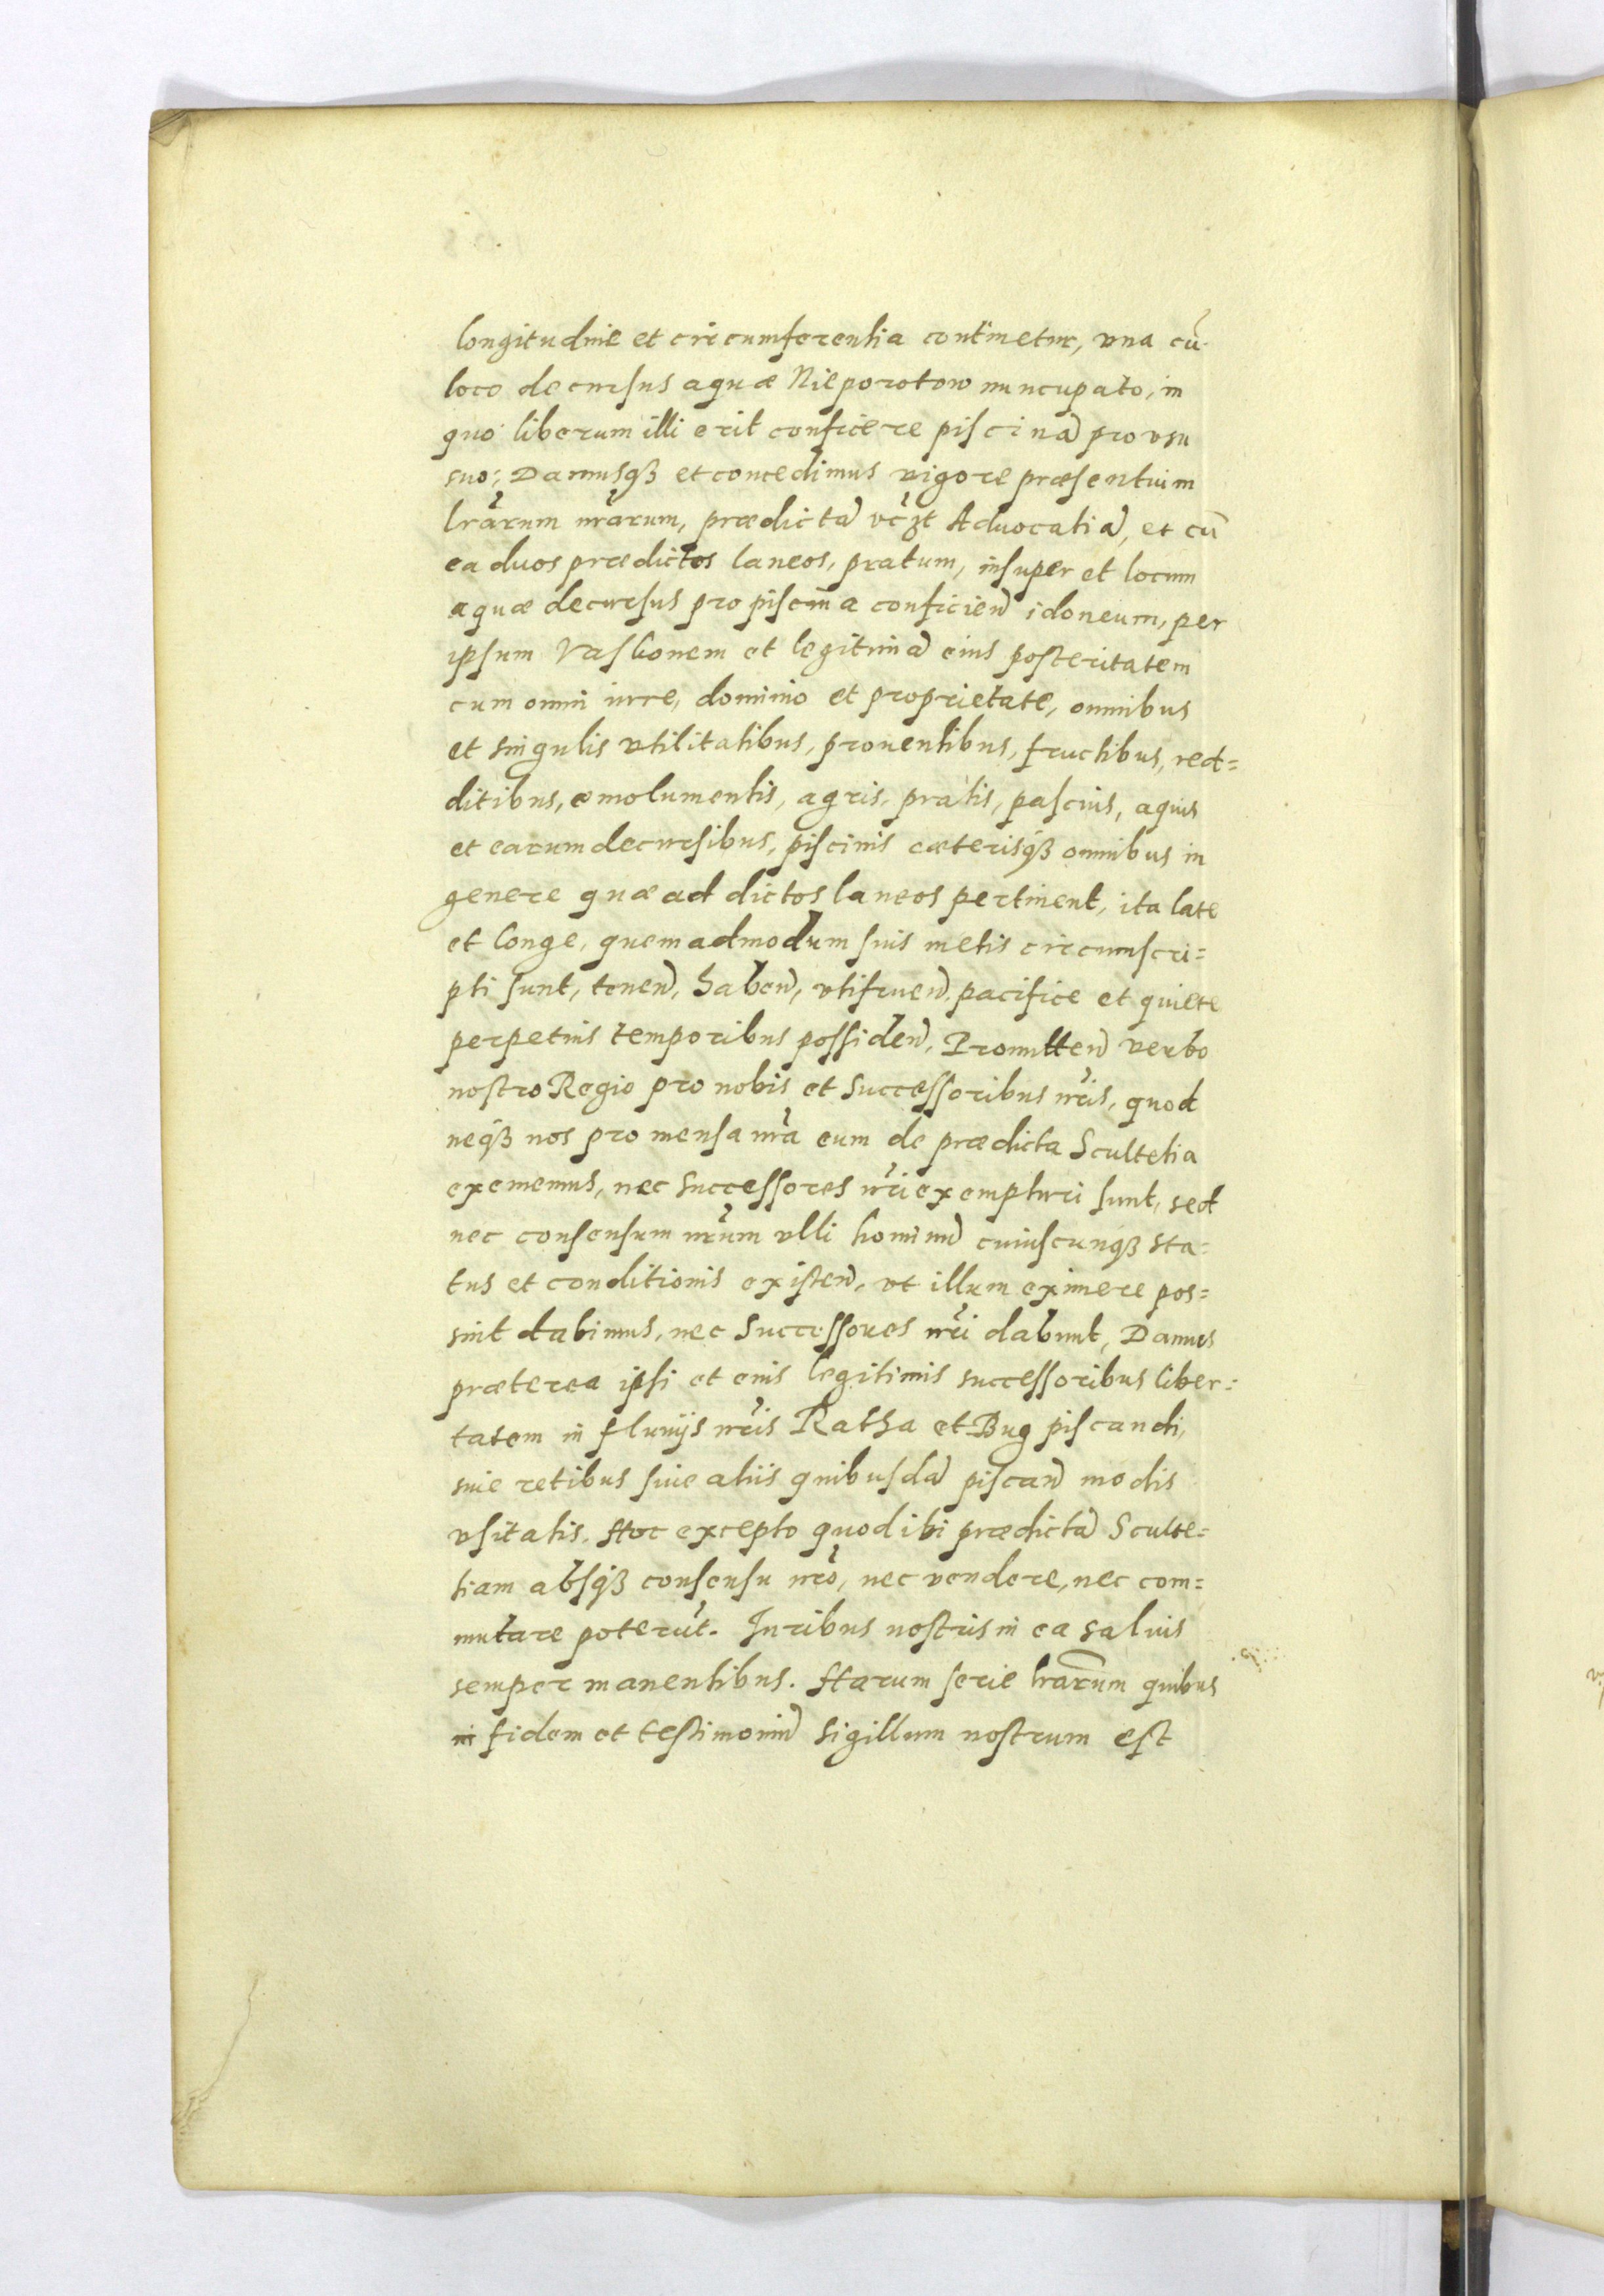 longitudine et circumferentia continetur, vna cū
loco decursus aquæ Nieporotow nuncupato, in
quo liberum illi erit conficere piscinā pro vsu
suo; Damusqꝫ et concedimus vigore præsentium
lrārum nrārum, prædictā vcꝫt Advocatiā, et cū
ea duos prædictos laneos, pratum, insuper et locum
aquæ decursus pro piscina conficiend̄ idoneum, per
ipsum Vaskonem et legitimā eius posteritatem
cum omni iure, dominio et proprietate, omnibus
et singulis vtilitatibus, prouentibus, fructibus, red=
ditibus, emolumentis, agris, pratis, pascuis, aquis
et earum decursibus, piscinis cæterisqꝫ omnibus in
genere quæ ad dictos laneos pertinent, ita late
et longe, quemadmodum suis metis circumscri=
pti sunt, tenen̄, haben̄, vtifruen̄, pacifice et quiete
perpetuis temporibus possiden̄, Promitten̄ verbo
nostro Regio pro nobis et successoribus nrīs, quod
neqꝫ nos pro mensa nrā eum de prædicta Scultetia
exememus, nec successores nrī exempturi sunt, sed
nec consensum nrūm vlli hominū cuiuscunqꝫ sta=
tus et conditionis existen̄, vt illum eximere pos=
sint dabimus, nec Successores nrī dabunt, Damus
præterea ipsi et eius legitimis successoribus liber=
tatem in fluuijs nrīs Ratha et Bug piscandi,
siue retibus siue aliis quibusdā piscan̄ modis
vsitatis. Hoc excepto quod ibi prædictā Sculte=
tiam absqꝫ consensu nrō, nec vendere, nec com=
mutare poterūt. Iuribus nostris in ea saluis
semper manentibus. Harum serie lrārum quibus
in fidem et testimoniū sigillum nostrum est